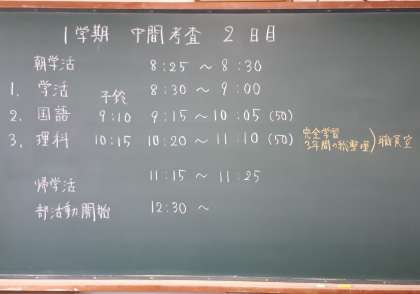 1学期 中間考査 2日目
朝学活 8:25 ～ 8:30
1. 学活 8:30 ～ 9:00
予鈴
2. 国語 9:10 9:15 ～ 10:05 (50)
3. 理科 10:15 10:20 ～ 11:10 (50)
完全学習
3年間の総整理 ) 職員室
帰学活 11:15 ～ 11:25
部活動開始 12:30 ～